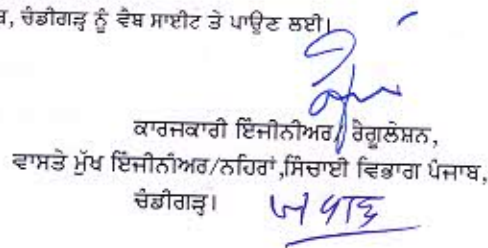 ਚੰਡੀਗੜ੍ਹ ਨੂੰ ਵੈਬ ਸਾਈਟ ਤੇ ਪਾਉਣ ਲਈ।
ਕਾਰਜਕਾਰੀ ਇੰਜੀਨੀਅਰ, ਰੈਗੂਲੇਸ਼ਨ,
ਵਾਸਤੇ ਮੁੱਖ ਇੰਜੀਨੀਅਰ/ਨਹਿਰਾਂ,ਸਿੰਚਾਈ ਵਿਭਾਗ ਪੰਜਾਬ,
ਚੰਡੀਗੜ੍ਹ।